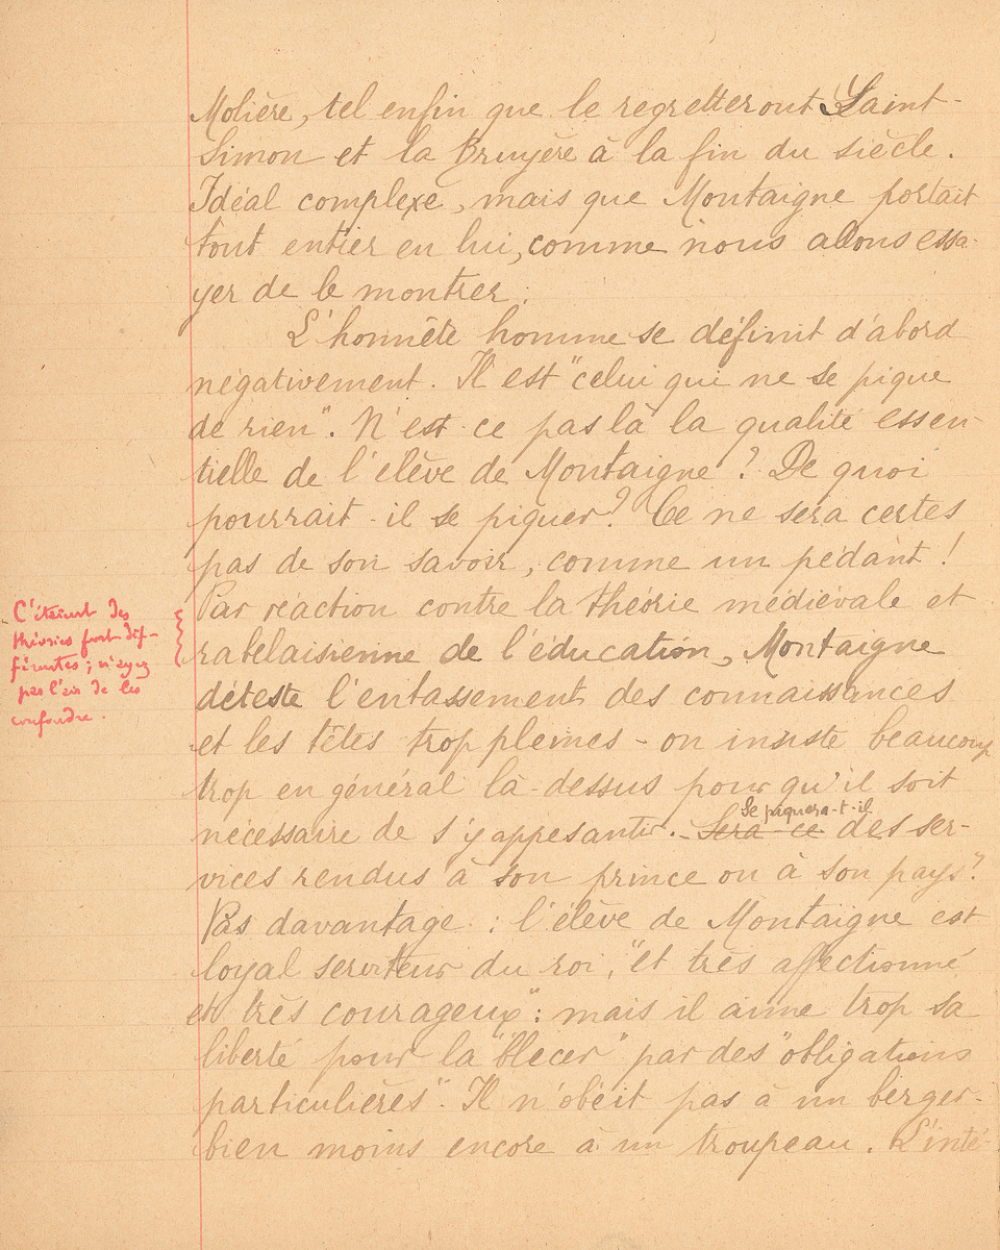 Molière, tel enfin que le regretteront Saint-
Simon et la Bruyère à la fin du siècle.
Idéal complexe, mais que Montaigne portait
tout entier en lui, comme nous allons essa-
yer de le montrer.
L'honnête homme se définit d'abord
négativement. Il est "celui qui ne se pique
de rien". N'est-ce pas là la qualité essen-
tielle de l'élève de Montaigne ? De quoi
pourrait-il se piquer? Ce ne sera certes
pas de son savoir, comme un pédant !
Par réaction contre la théorie médiévale et
rabelaisienne de l'éducation, Montaigne
déteste l'entassement des connaissances
et les têtes trop pleines - on insiste beaucoup
trop en général là-dessus pour qu'il soit
nécessaire de s'y appesantir. Sera-ce des ser-
Se piquera-t-il
vices rendus à son prince ou à son pays ?
Pas davantage : l'élève de Montaigne est
loyal serviteur du roi, "et très affectionné
et très courageux" : mais il aime trop sa
liberté pour la "blecer" par des "obligations
particulières". Il n'obéit pas à un berger-
bien moins encore à un troupeau. L'inté-
C'étaient des
théories fort dif-
férentes; n'ayez
pas l'air de les
confondre.